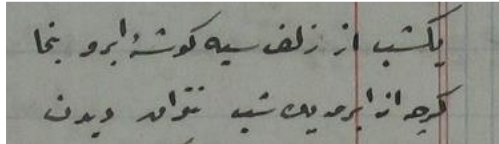 یکشب از زلف سیه کوشهٔ ابرو بنما
کرچه از ابرو مه شب نتوان دیدن